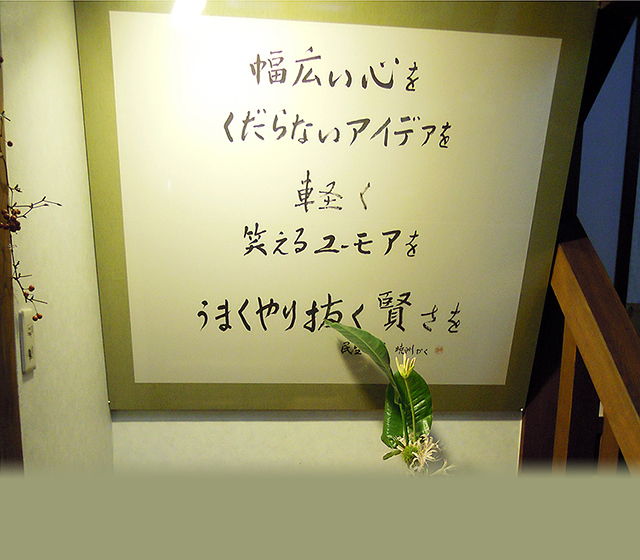 幅広い心を
くだらないアイデアを
軽く
笑えるユーモアを
うまくやり抜く賢さを